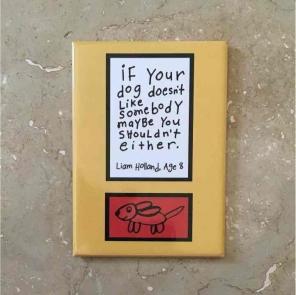 if Your
dog doesn't
Like
somebody
maybe You
shouldn't
either.
Liam Holland, Age 8